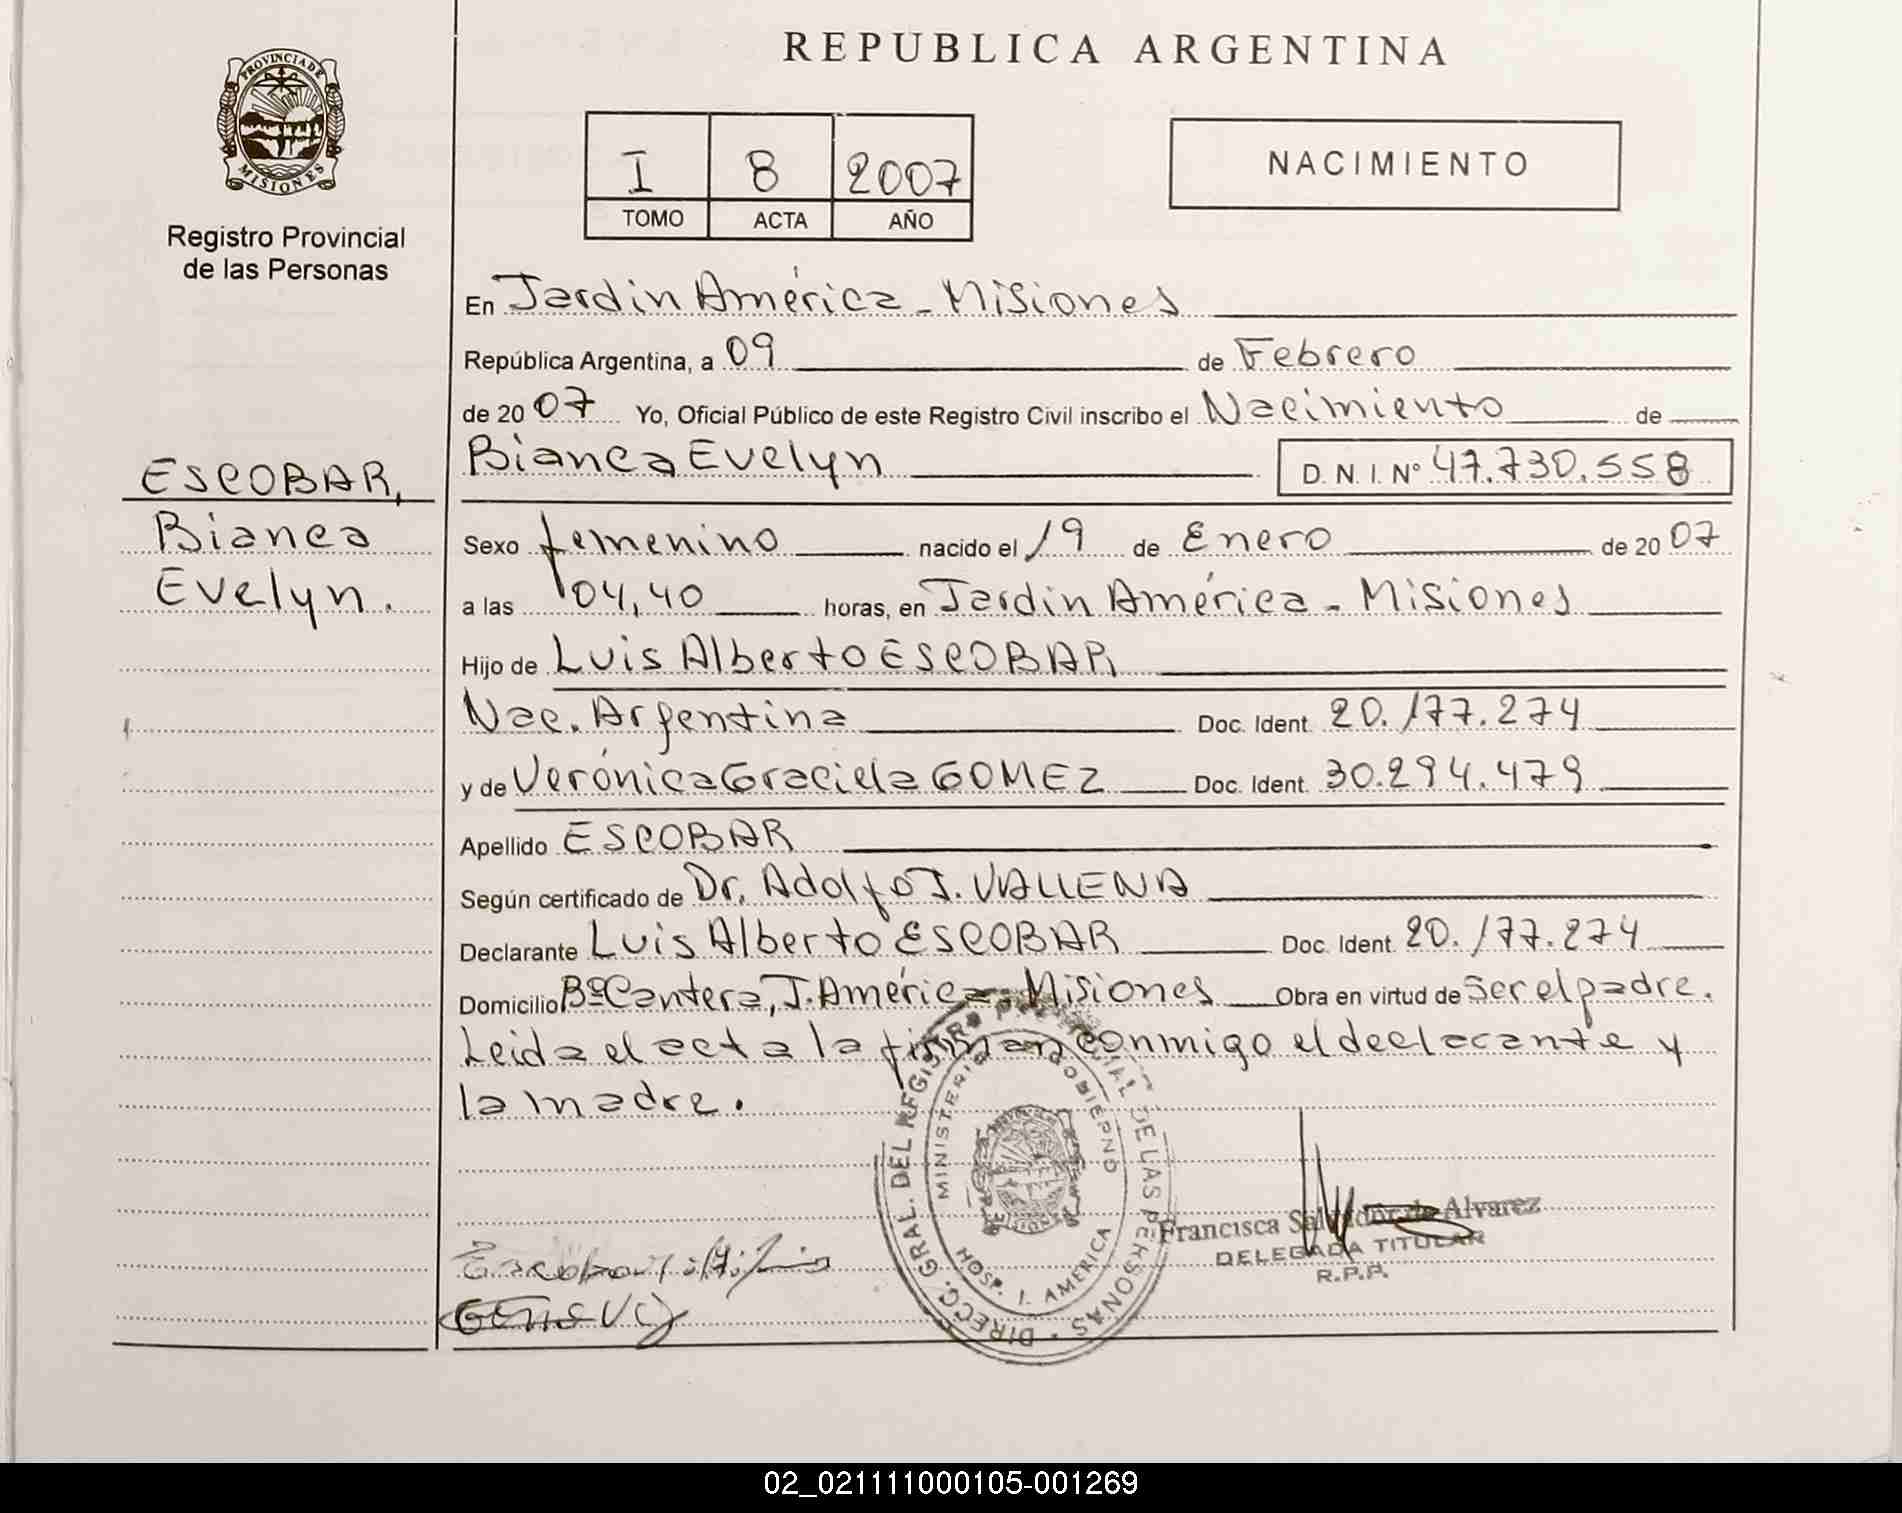 REPUBLICA ARGENTINA
PROVINCIA DE MISIONES
Registro Provincial
de las Personas
I 8 2007
TOMO ACTA AÑO
NACIMIENTO
En Jardin América - Misiones
República Argentina, a 09 de Febrero
de 2007 Yo, Oficial Público de este Registro Civil inscribo el Nacimiento de
Bianca Evelyn D.N.I. Nº 47.730.558
ESCOBAR,
Bianca
Evelyn.
Sexo femenino nacido el 19 de Enero de 2007
a las 04,40 horas, en Jardin América - Misiones
Hijo de Luis Alberto ESCOBAR
Nac. Argentina Doc. Ident. 20.177.274
y de Verónica Graciela GOMEZ Doc. Ident. 30.294.479
Apellido ESCOBAR
Según certificado de Dr. Adolfo J. VALLENA
Declarante Luis Alberto ESCOBAR Doc. Ident. 20.177.274
Domicilio Bº Cantera, J. América - Misiones Obra en virtud de Ser el padre.
Leida el acta la firman conmigo el declarante y
la madre.
DIRECC. GRAL. DEL REGISTRO PROVINCIAL DE LAS PERSONAS
MINISTERIO GOBIERNO
HOSP. J. AMERICA
Francisca Salvador de Alvarez
DELEGADA TITULAR
R.P.P.
02_021111000105-001269